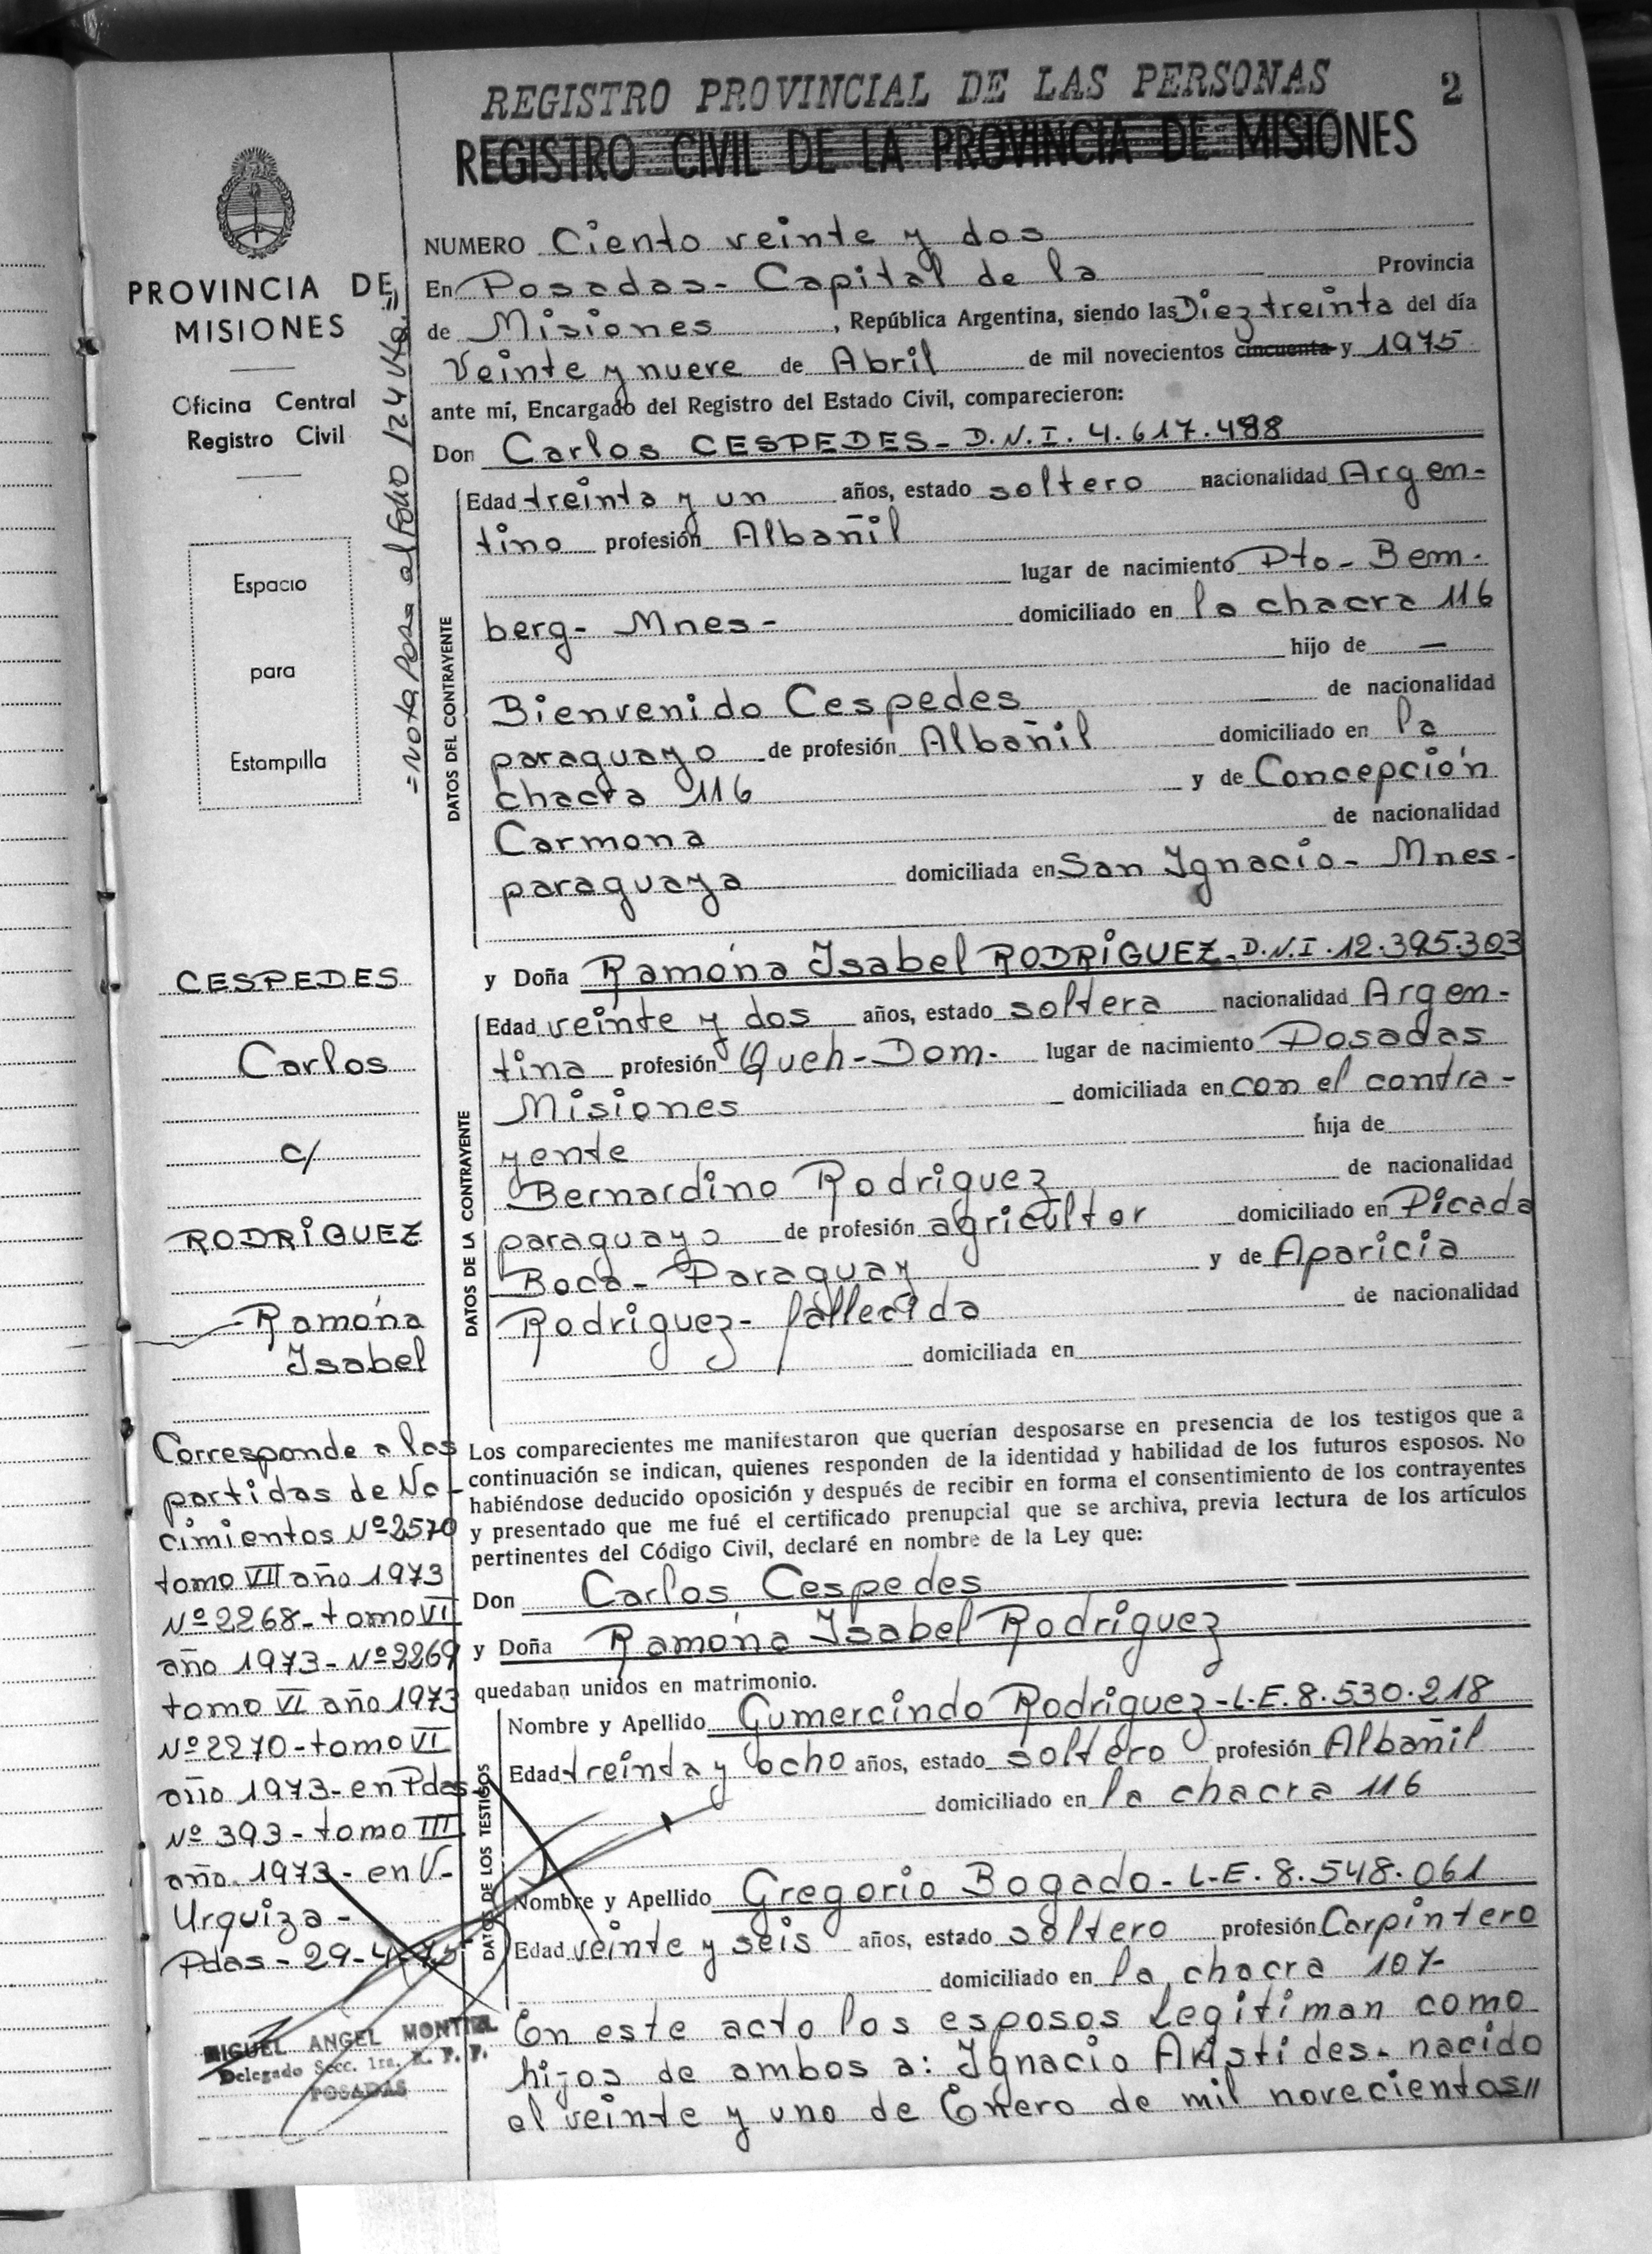 REGISTRO PROVINCIAL DE LAS PERSONAS 2
REGISTRO CIVIL DE LA PROVINCIA DE MISIONES
PROVINCIA DE
MISIONES
Oficina Central
Registro Civil
Espacio
para
Estampilla
=Nota Pasa al Folio 124 Vto.=//
NUMERO Ciento veinte y dos
En Posadas- Capital de la Provincia
de Misiones, República Argentina, siendo las Diez treinta del día
Veinte y nueve de Abril de mil novecientos cincuenta y 1975
ante mí, Encargado del Registro del Estado Civil, comparecieron:
Don Carlos CESPEDES- D.N.I. 4.617.488
DATOS DEL CONTRAYENTE
Edad treinta y un años, estado soltero nacionalidad Argen-
tino profesión Albañil
lugar de nacimiento Pto- Bem-
berg- Mnes- domiciliado en la chacra 116
hijo de —
Bienvenido Cespedes de nacionalidad
paraguayo de profesión Albañil domiciliado en la
chacra 116 y de Concepción
Carmona de nacionalidad
paraguaya domiciliada en San Ignacio- Mnes-
y Doña Ramóna Isabel RODRIGUEZ- D.N.I. 12.395.303
DATOS DE LA CONTRAYENTE
Edad veinte y dos años, estado soltera nacionalidad Argen-
tina profesión Queh-Dom- lugar de nacimiento Posadas
Misiones domiciliada en con el contra-
yente hija de
Bernardino Rodriguez de nacionalidad
paraguayo de profesión agricultor domiciliado en Picada
Boca- Paraguay y de Aparicia
Rodriguez- fallecida de nacionalidad
domiciliada en
CESPEDES
Carlos
c/
RODRIGUEZ
Ramóna
Isabel
Los comparecientes me manifestaron que querían desposarse en presencia de los testigos que a
continuación se indican, quienes responden de la identidad y habilidad de los futuros esposos. No
habiéndose deducido oposición y después de recibir en forma el consentimiento de los contrayentes
y presentado que me fué el certificado prenupcial que se archiva, previa lectura de los artículos
pertinentes del Código Civil, declaré en nombre de la Ley que:
Don Carlos Cespedes
y Doña Ramóna Isabel Rodriguez
quedaban unidos en matrimonio.
DATOS DE LOS TESTIGOS
Nombre y Apellido Gumercindo Rodriguez- L.E. 8.530.218
Edad treinda y ocho años, estado soltero profesión Albañil
domiciliado en la chacra 116
Nombre y Apellido Gregorio Bogado- L.E. 8.548.061
Edad veinte y seis años, estado soltero profesión Carpintero
domiciliado en la chacra 107-
En este acto los esposos legitiman como
hijos de ambos a: Ignacio Aristides- nacido
el veinte y uno de Enero de mil novecientos//
Corresponde a las
partidas de Na-
cimientos Nº 2570
tomo VII año 1973
Nº 2268- tomo VI
año 1973- Nº 2269
tomo VI año 1973
Nº 2270- tomo VI
año 1973- en Pdas
Nº 393- tomo III
año 1973- en V-
Urquiza-
Pdas- 29-4-75
MIGUEL ANGEL MONTIEL
Delegado Secc. 1ra. R. P. P.
POSADAS